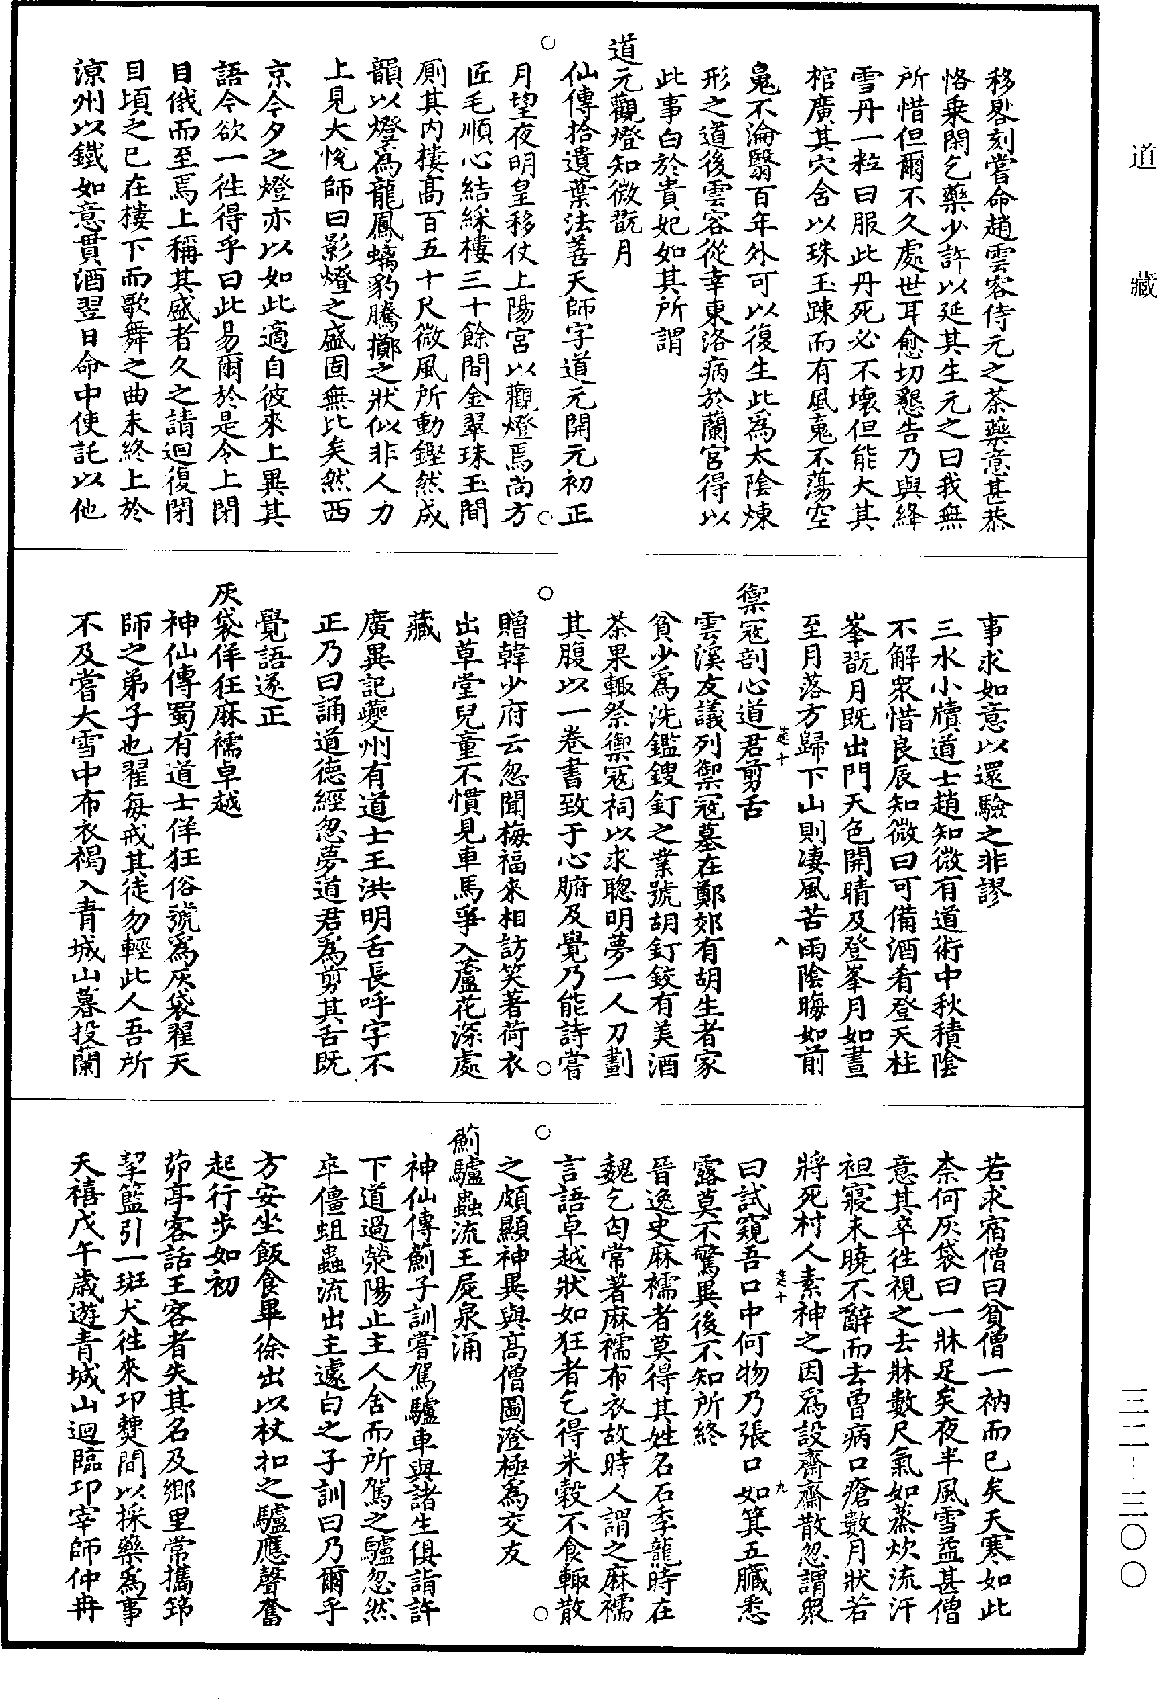 道藏
三二-三〇〇
移晷刻嘗命趙雲容侍元之茶藥意甚恭
恪乗閑乞藥少許以延其生元之曰我無
所惜但爾不久處世耳愈切懇告乃與絳
雪丹一粒曰服此丹死必不壊但能大其
棺廣其穴含以珠玉踈而有風䰟不蕩空
鬼不淪翳百年外可以復生此爲太陰煉
形之道後雲容從幸東洛病於蘭宮得以
此事白於貴妃如其所謂
道元觀燈知微翫月
仙傳拾遺葉法善天師字道元開元初正
月望夜明皇移仗上陽宮以觀燈焉尚方
匠毛順心結綵樓三十餘間金翠珠玉間
厠其内樓髙百五十尺微風所動鏗然成
韻以燈爲龍鳳螭豹騰擲之狀似非人力
上見大悅師曰影燈之盛固無比矣然西
京今夕之燈亦以如此適自彼來上異其
語今欲一徃得乎曰此易爾於是令上閉
目俄而至焉上稱其盛者久之請迴復閉
目頃之已在樓下而歌舞之曲未終上於
涼州以鐵如意貫酒翌日命中使託以他
事求如意以還驗之非謬
三水小牘道士趙知微有道術中秋積陰
不解衆惜良辰知微曰可備酒肴登天柱
峯翫月既出門天色開晴及登峯月如晝
至月落方歸下山則凄風苦雨陰晦如前
禦寇剖心道君剪舌
雲溪友議列禦寇墓在鄭郊有胡生者家
貧少爲洗鑑鎪釘之業號胡釘鉸有美酒
茶果輙祭禦寇祠以求聰明夢一人刀劃
其腹以一卷書致于心腑及覺乃能詩嘗
贈韓少府云忽聞梅福來相訪笑著荷衣
出草堂兒童不慣見車馬爭入蘆花深處
藏
廣異記夔州有道士王洪明舌長呼字不
正乃曰誦道德經忽夢道君爲剪其舌既
覺語遂正
灰袋佯狂麻襦卓越
神仙傳蜀有道士佯狂俗號爲灰袋翟天
師之弟子也翟每戒其徒勿輕此人吾所
不及嘗大雪中布衣褐入青城山暮投蘭
若求宿僧曰貧僧一衲而已矣天寒如此
柰何灰袋曰一牀足矣夜半風雪益甚僧
意其卒徃視之去牀數尺氣如蒸炊流汗
袒寢未曉不辭而去曽病口瘡數月狀若
將死村人素神之因爲設齋齋散忽謂衆
曰試窺吾口中何物乃張口如箕五臟悉
露莫不驚異後不知所終
晉逸史麻襦者莫得其姓名石季龍時在
魏乞匃常著麻襦布衣故時人謂之麻襦
言語卓越狀如狂者乞得米穀不食輙散
之頗顯神異與髙僧圖澄極爲交友
薊驢蟲流王屍泉涌
神仙傳薊子訓嘗駕驢車與諸生俱詣許
下道過滎陽止主人舍而所駕之驢忽然
卒僵蛆蟲流出主遽白之子訓曰乃爾乎
方安坐飯食畢徐出以杖扣之驢應聲奮
起行步如初
茆亭客話王客者失其名及鄉里常攜筇
挈籃引一斑犬徃來邛僰間以採藥爲事
天禧戊午歲遊青城山迴臨邛宰師仲冉